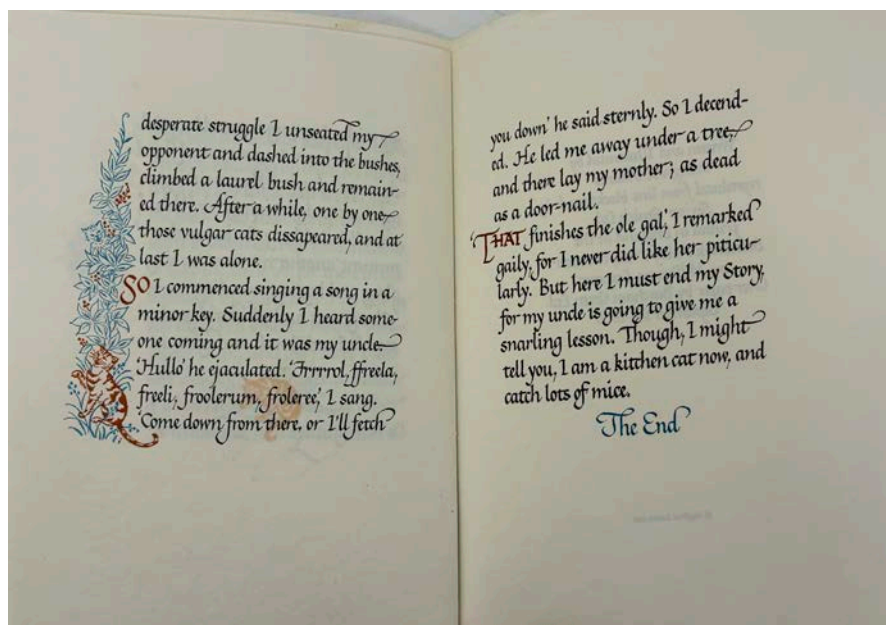 desperate struggle I unseated my
opponent and dashed into the bushes,
climbed a laurel bush and remain-
ed there. After a while, one by one
those vulgar cats dissapeared, and at
last I was alone.
So I commenced singing a song in a
minor key. Suddenly I heard some-
one coming and it was my uncle.
'Hullo' he ejaculated. 'Frrrrol, ffreela,
freeli, froolerum, froleree,' I sang.
'Come down from there, or I'll fetch
you down' he said sternly. So I decend-
ed. He led me away under a tree,
and there lay my mother; as dead
as a door-nail.
'THAT finishes the ole gal,' I remarked
gaily, for I never did like her piticu-
larly. But here I must end my Story,
for my uncle is going to give me a
snarling lesson. Though, I might
tell you, I am a kitchen cat now, and
catch lots of mice.
The End